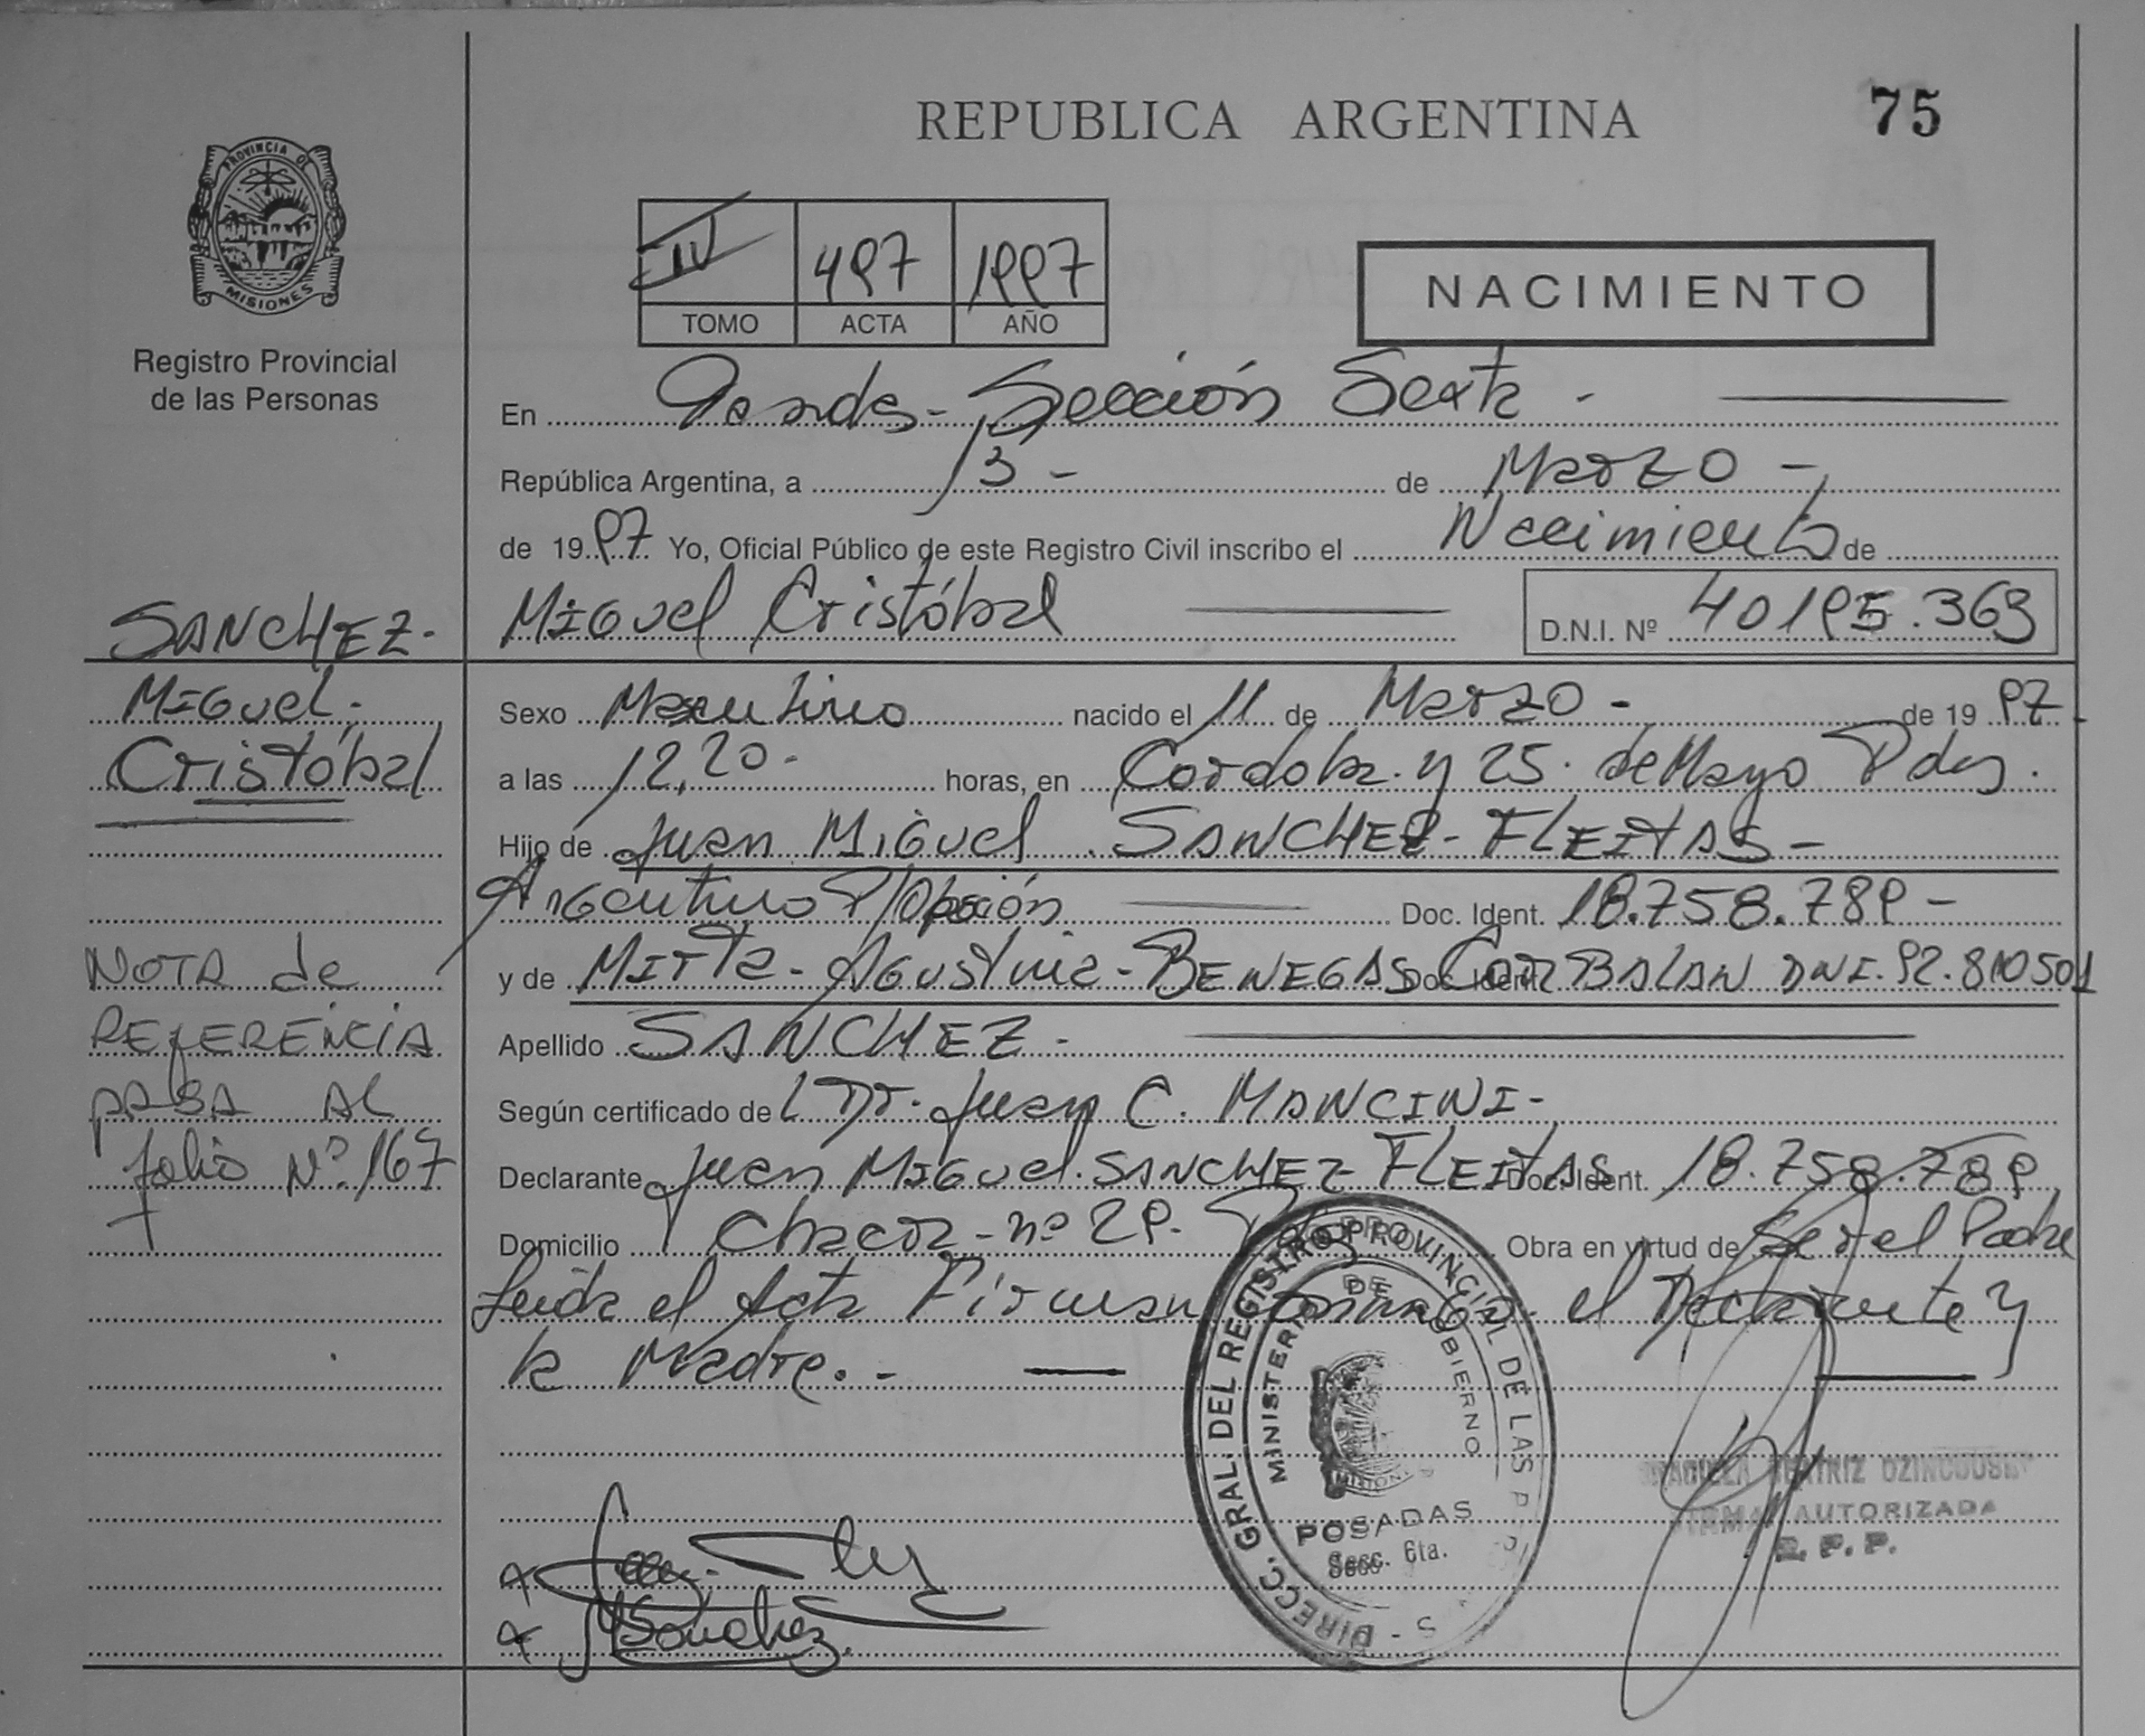 REPUBLICA ARGENTINA
75
PROVINCIA DE
MISIONES
Registro Provincial
de las Personas
IV 497 1997
TOMO ACTA AÑO
NACIMIENTO
En Posadas - Sección Sexta -
República Argentina, a 13 - de Marzo -
de 1997 Yo, Oficial Público de este Registro Civil inscribo el Nacimiento de
Miguel Cristóbal
D.N.I. Nº 40195.363
SANCHEZ-
Miguel
Cristóbal
Sexo Masculino nacido el 11 de Marzo - de 1997
a las 12,20- horas, en Cordoba y 25 de Mayo Pdas.
Hijo de Juan Miguel SANCHEZ - FLEITAS -
Argentino P/Opción Doc. Ident. 18.758.789 -
y de Mirta - Agustina - BENEGAS CORBALAN Doc. Ident. DNI. 92.810501
Apellido SANCHEZ -
Según certificado del Dr. Juan C. MANCINI-
Declarante Juan Miguel SANCHEZ FLEITAS Doc. Ident. 18.758.789
Domicilio Chacra - nº 29. Pdas Obra en virtud de Ser el Padre
Leída el Acta Firman conmigo el Declarante y
la Madre. -
NOTA de
REFERENCIA
PASA AL
folio Nº 167
DIRECC. GRAL. DEL REGISTRO PROVINCIAL DE LAS
MINISTERIO DE GOBIERNO
POSADAS
Secc. 6ta.
BEATRIZ
FIRMA AUTORIZADA
R. P. P.
MSanchez